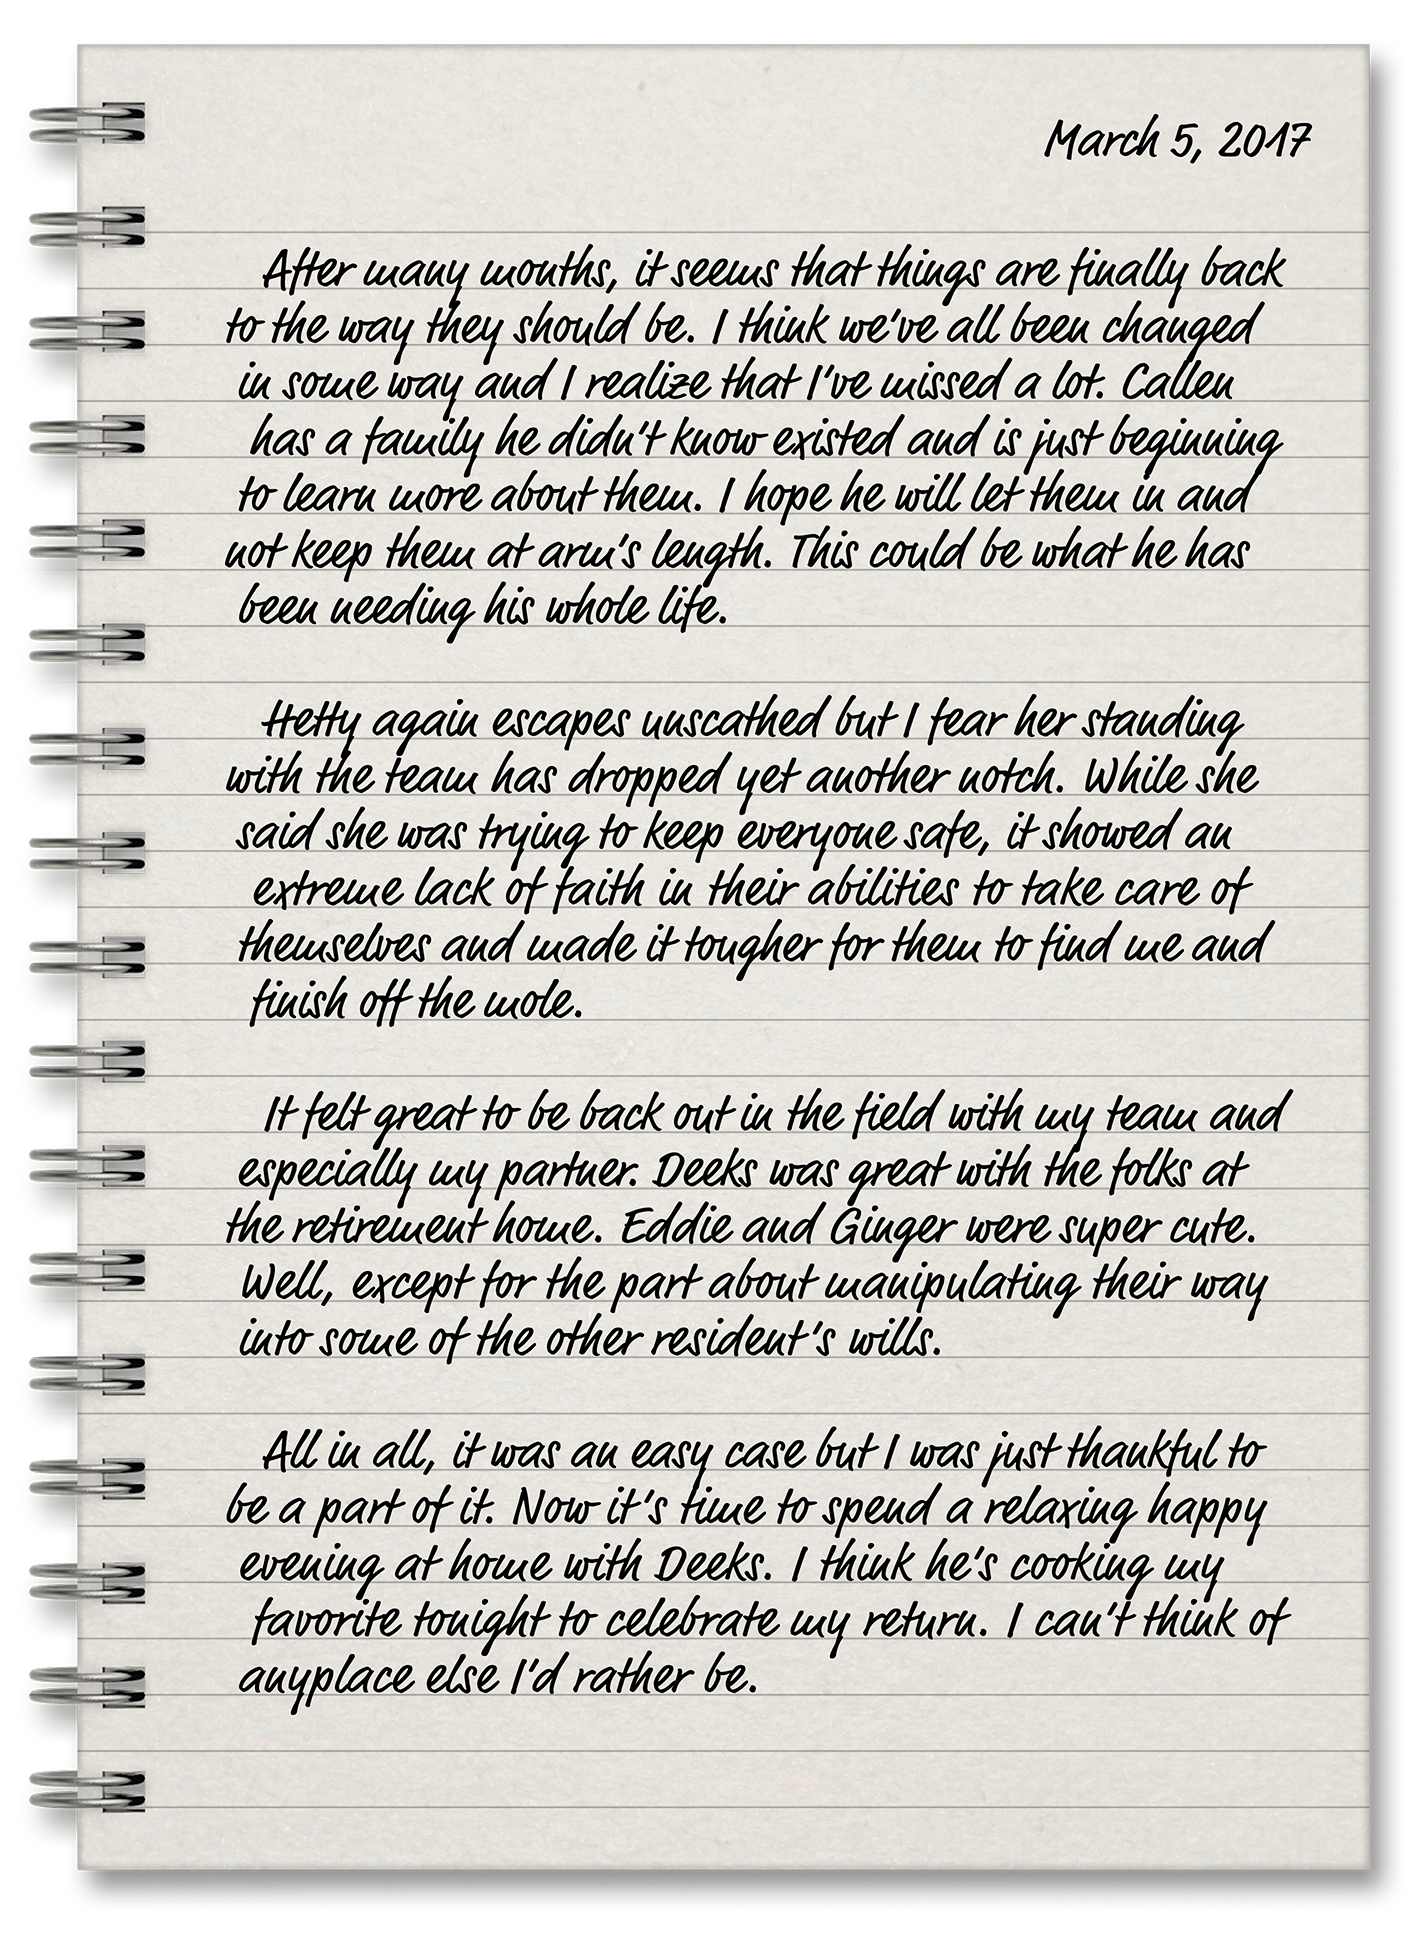 March 5, 2017
After many months, it seems that things are finally back
to the way they should be. I think we've all been changed
in some way and I realize that I've missed a lot. Callen
has a family he didn't know existed and is just beginning
to learn more about them. I hope he will let them in and
not keep them at arm's length. This could be what he has
been needing his whole life.
Hetty again escapes unscathed but I fear her standing
with the team has dropped yet another notch. While she
said she was trying to keep everyone safe, it showed an
extreme lack of faith in their abilities to take care of
themselves and made it tougher for them to find me and
finish off the mole.
It felt great to be back out in the field with my team and
especially my partner. Deeks was great with the folks at
the retirement home. Eddie and Ginger were super cute.
Well, except for the part about manipulating their way
into some of the other resident's wills.
All in all, it was an easy case but I was just thankful to
be a part of it. Now it's time to spend a relaxing happy
evening at home with Deeks. I think he's cooking my
favorite tonight to celebrate my return. I can't think of
anyplace else I'd rather be.